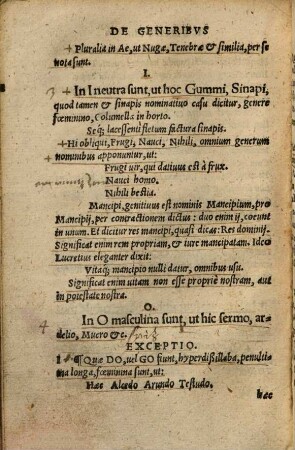 DE GENERIBVS
Pluralia in Ae, ut Nugæ, Tenebræ & similia, per se
nota sunt.
I.
In I neutra sunt, ut hoc Gummi, Sinapi,
quod tamen & sinapis nominatiuo casu dicitur, genere
fœminino, Columella in horto.
Seq; lacessenti fletum factura sinapis.
Hi obliqui, Frugi, Nauci, Nihili, omnium generum
nominibus apponuntur, ut:
Frugi uir, qui datiuus est à frux.
Nauci homo.
Nihili bestia.
Mancipi, genitiuus est nominis Mancipium, pro
Mancipij, per contractionem dictus: duo enim ij, coeunt
in unum. Et dicitur res mancipi, quasi dicas: Res dominij.
Significat enim rem propriam, & iure mancipatam. Ideo
Lucretius eleganter dixit:
Vitaq; mancipio nulli datur, omnibus usu.
Significat enim uitam non esse propriè nostram, aut
in potestate nostra.
O.
In O masculina sunt, ut hic sermo, ar-
delio, Mucro &c.
EXCEPTIO.
Quæ DO, uel GO fiunt, hyperdissyllaba, penulti-
ma longa, fœminina sunt, ut:
Hæc Alcedo Arundo Testudo.
hæc